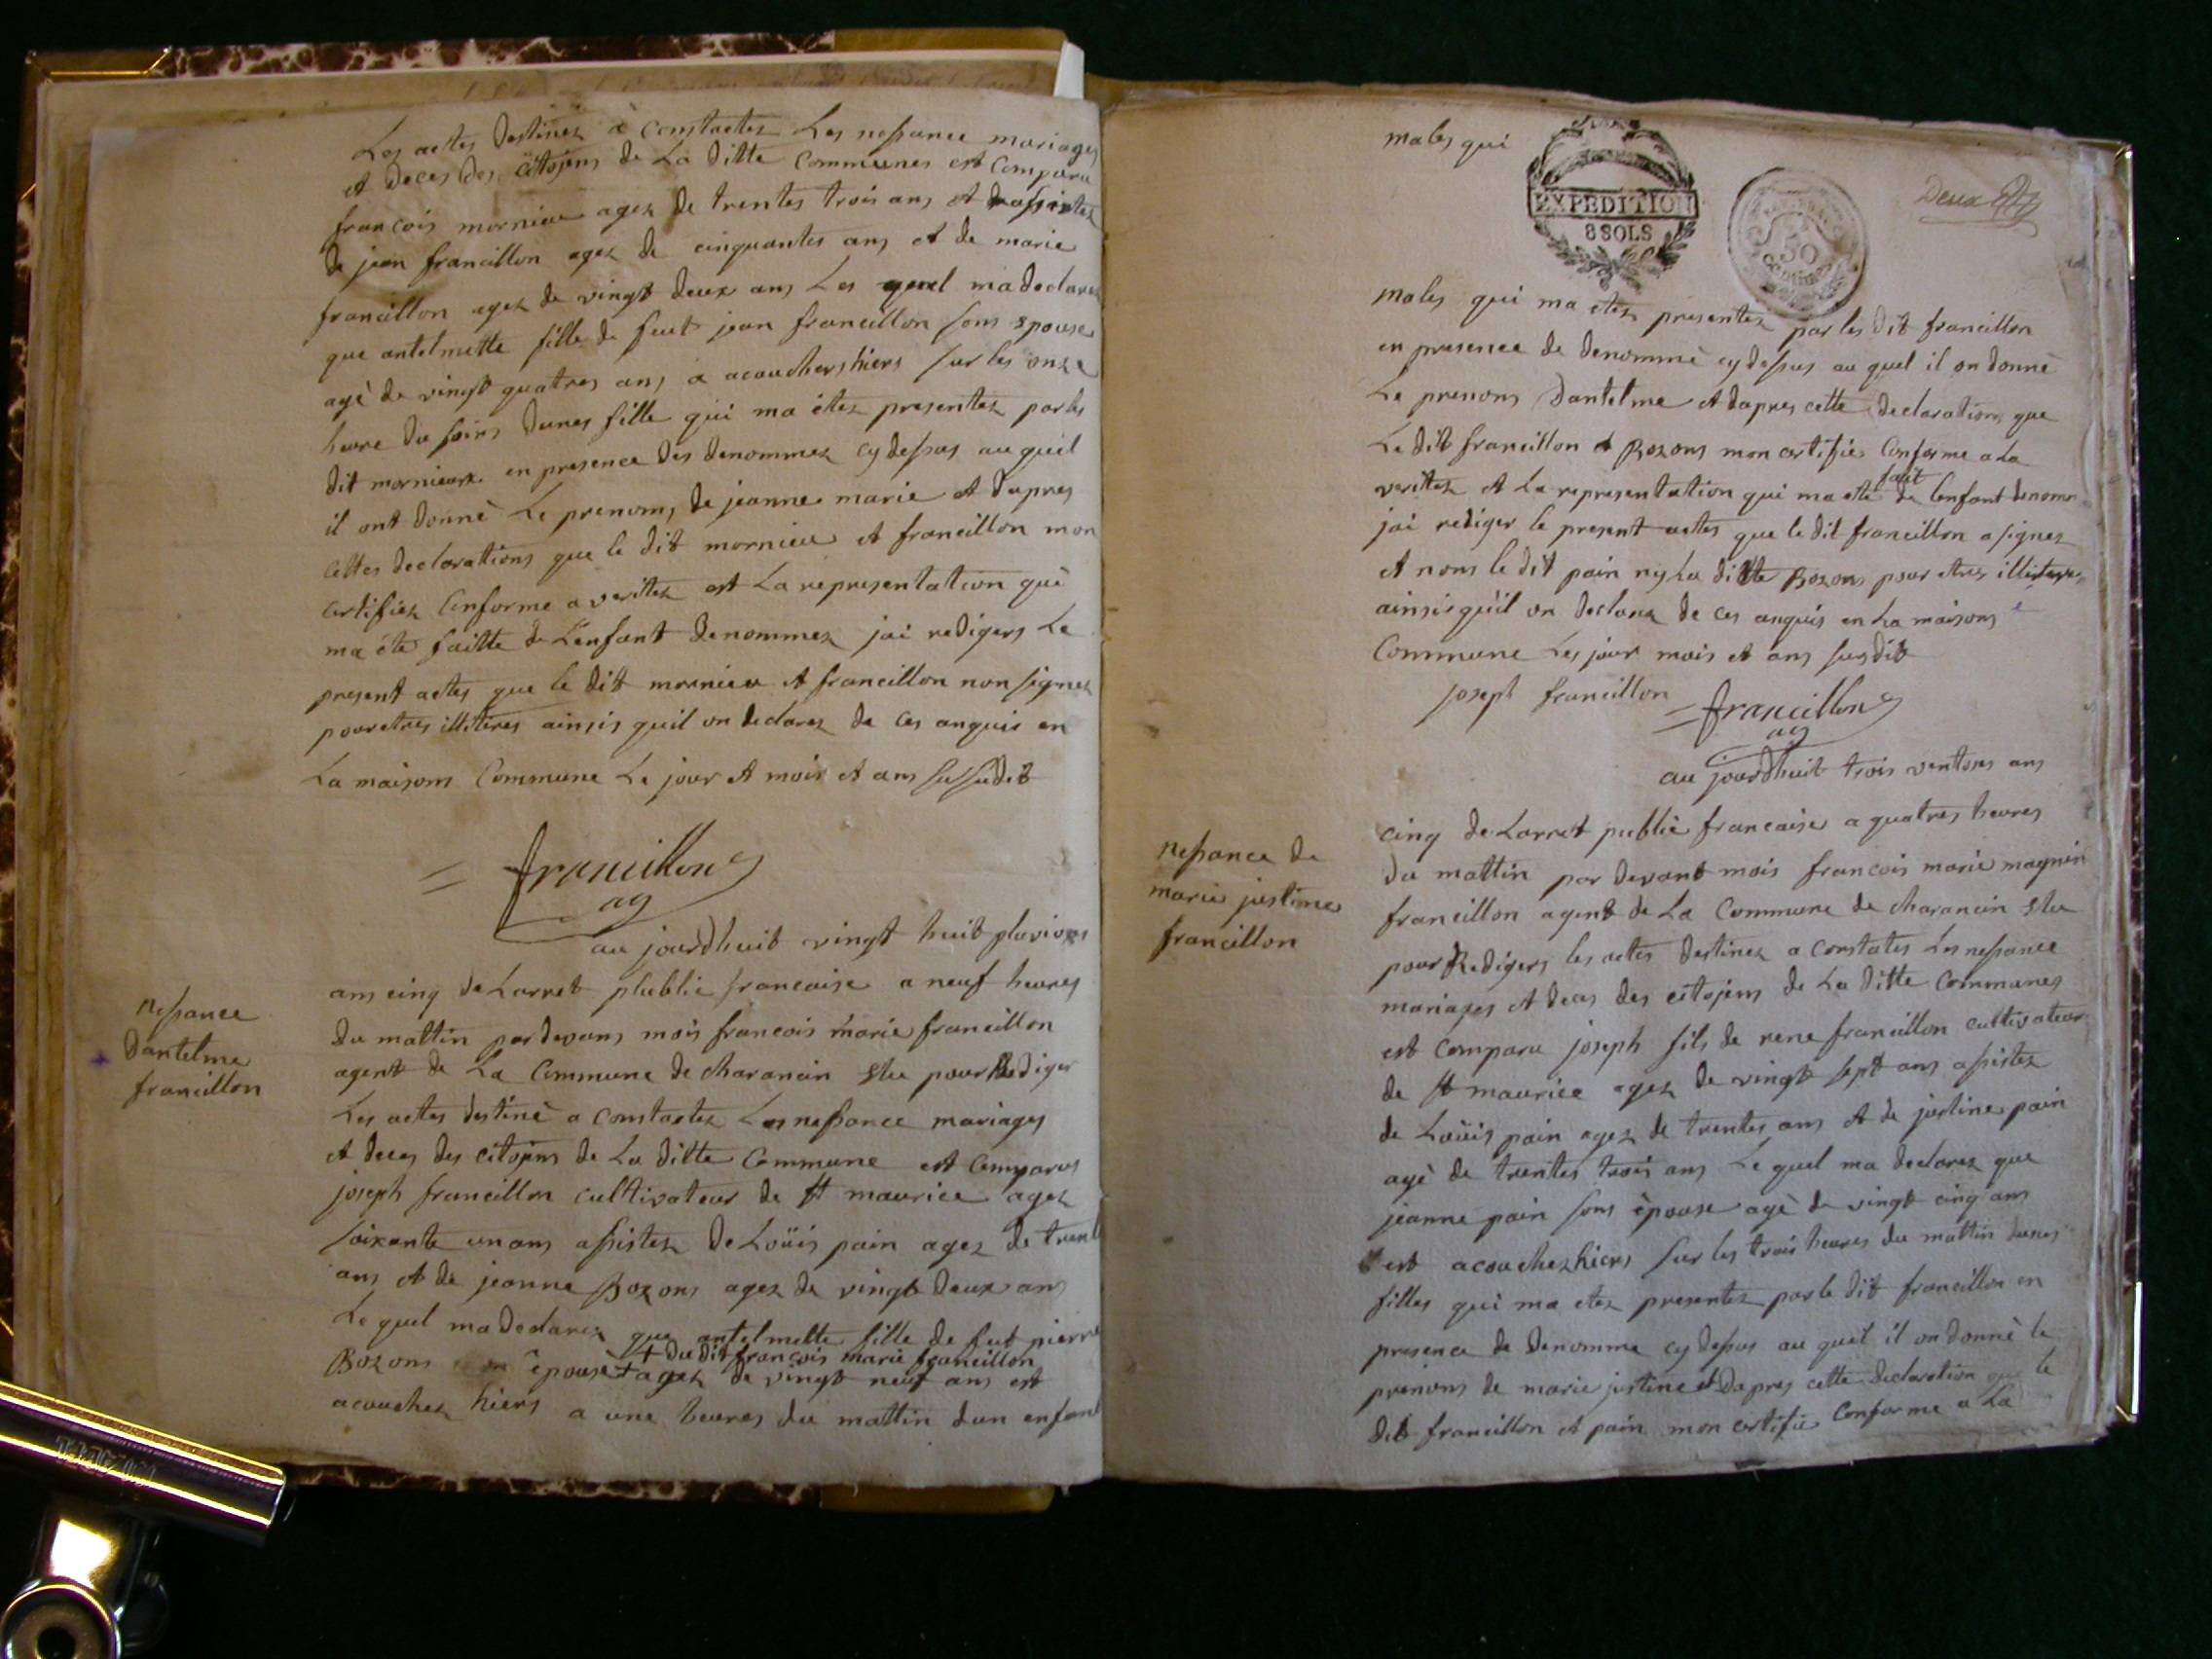 Les actes destinez à constactez Les nessance mariages
et deces des citojens de La ditte Communes est Comparu
francois mornieu agez de trentes trois ans et
de jean francillon agez de cinquantes ans et de marie
francillon agez de vingt deux ans Les quel ma declarez
que antelmette fille de feut jean francillon sons epouse
agè de vingt quatres ans a acouchers hiers sur les onze
heure du soirs dunes fille qui ma étez presentez par les
dit mornieux en presence des denommez cy dessus au quel
il ont donnè Le prenoms de jeanne marie et dapres
cettes declarations que le dit mornieu et francillon mon
certifiez Conforme a veritez est La representation què
ma été faitte de Lenfant denommez jai redigers Le
present actes que le dit mornieu et francillon non signez
pour etres illiteres ainsis quil on declarez de ces anquis en
La maisons Commune Le jour et mois et ans sussudit
= francillon
ag
au jourdhuit vingt huit pluvioses
ans cinq de Larret plublic francaise a neuf heures
nessance
dantelme
francillon
du mattin par devans mois francois marie francillon
agent de La Commune de charancin élu pour Rediger
Les actes destinè a constactez Les nessance mariages
et deces des citojens de La ditte Commune est Comparus
joseph francillon cultivateur de st maurice agez
soixante un ans assistez de Loüis pain agez de trente
ans et de jeanne Bozons agez de vingt deux ans
Le quel ma declarez que antelmette fille de fut pierre
+ du dit francois marie francillon
Bozons épouse + agez de vingt neuf ans est
acouchez hiers a une heures du mattin dun enfant
males qui
EXPEDITION
8 SOLS
50
centimes
Deux
males qui ma etez presentez par les dit francillon
en presence de denommè cy dessus au quel il on donnè
Le prenoms dantelme et dapres cette declarations que
Le dit francillon et Bozons mon certifie Conforme a La
fait
veritez et La representation qui ma ete de lenfant denome
jai rediger le present actes que le dit francillon a signez
et nons le dit pain ny La ditte Bozons pour etres
ainsis quil on declarez de ces anquis en La maisons
Commune Les jour mois et ans susdit
joseph francillon = francillon
ag
au jourdhuit trois ventoses ans
nessance de
marie justine
francillon
cinq de Larret publiè francaise a quatres heures
du mattin par devant mois francois marie magnin
francillon agent de La Commune de charancin élu
pour Redigers les actes destinez a constates Les nessance
mariages et deces des citojens de La ditte Communes
est comparu joseph fils de rene francillon cultivateur
de st maurice agez de vingt sept ans assistez
de Loüis pain agez de trentes ans et de justine pain
agè de trentes trois ans Le quel ma declarez que
jeanne pain sons èpouse agè de vingt cinq ans
est acouchez hiers sur les trois heures du mattin dunes
filles qui ma etez presentez par le dit francillon en
presence de denomme cy dessus au quel il on donnè le
prenoms de marie justine et dapres cette declaration que le
dit francillon et pain mon certifie Conforme a La